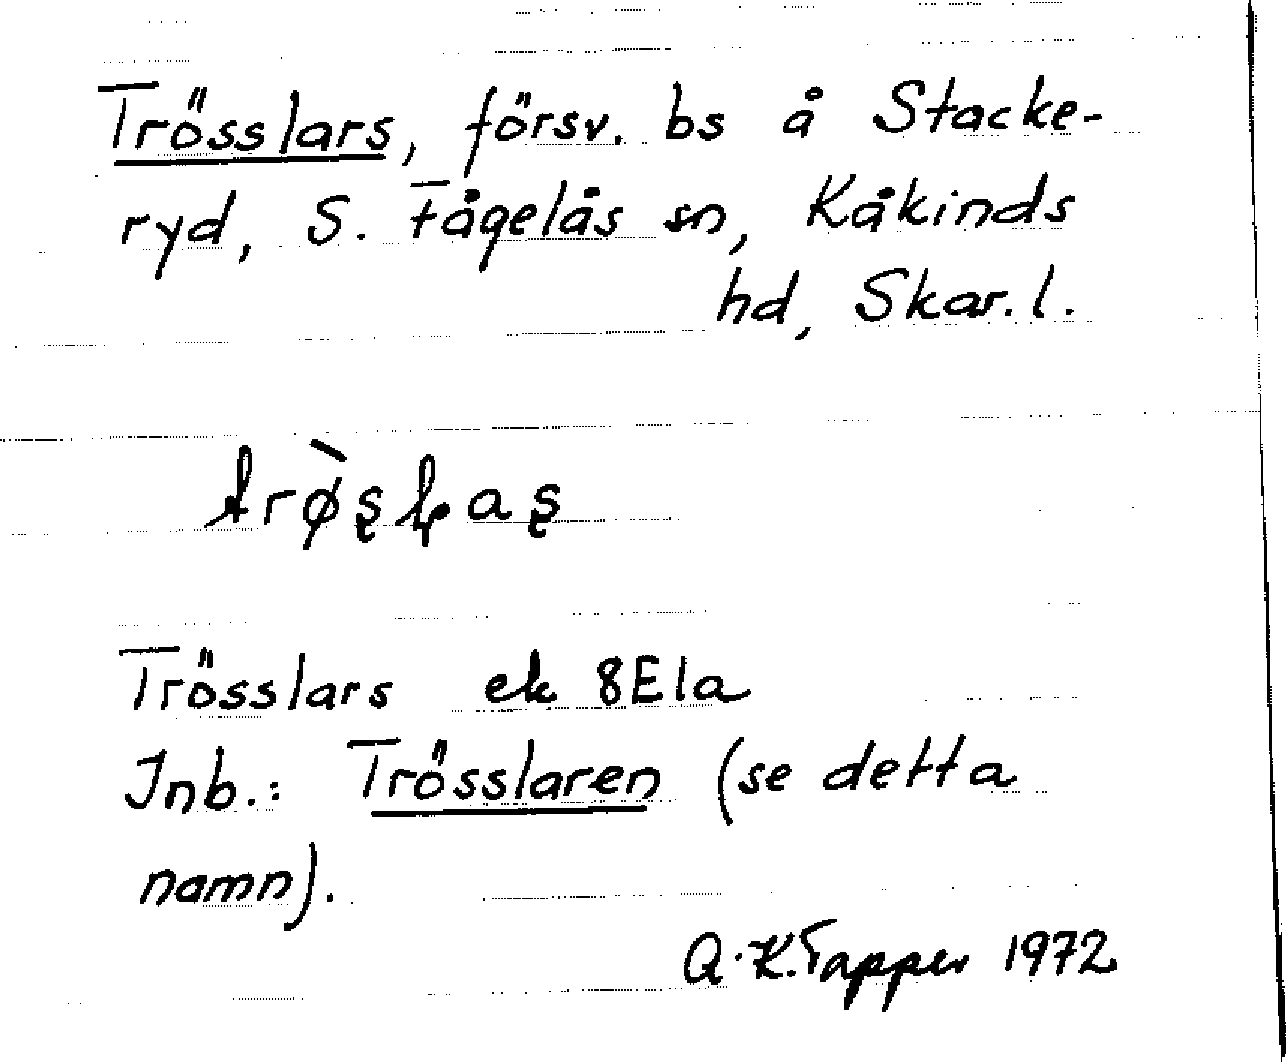 Trösslars, försv. bs å Stacke-
ryd, S. Fågelås sn, Kåkinds
hd, Skar. l.
Trösslars ek 8E1a
Inb.: Trösslaren (se detta
namn).
A.K. Tapper 1972